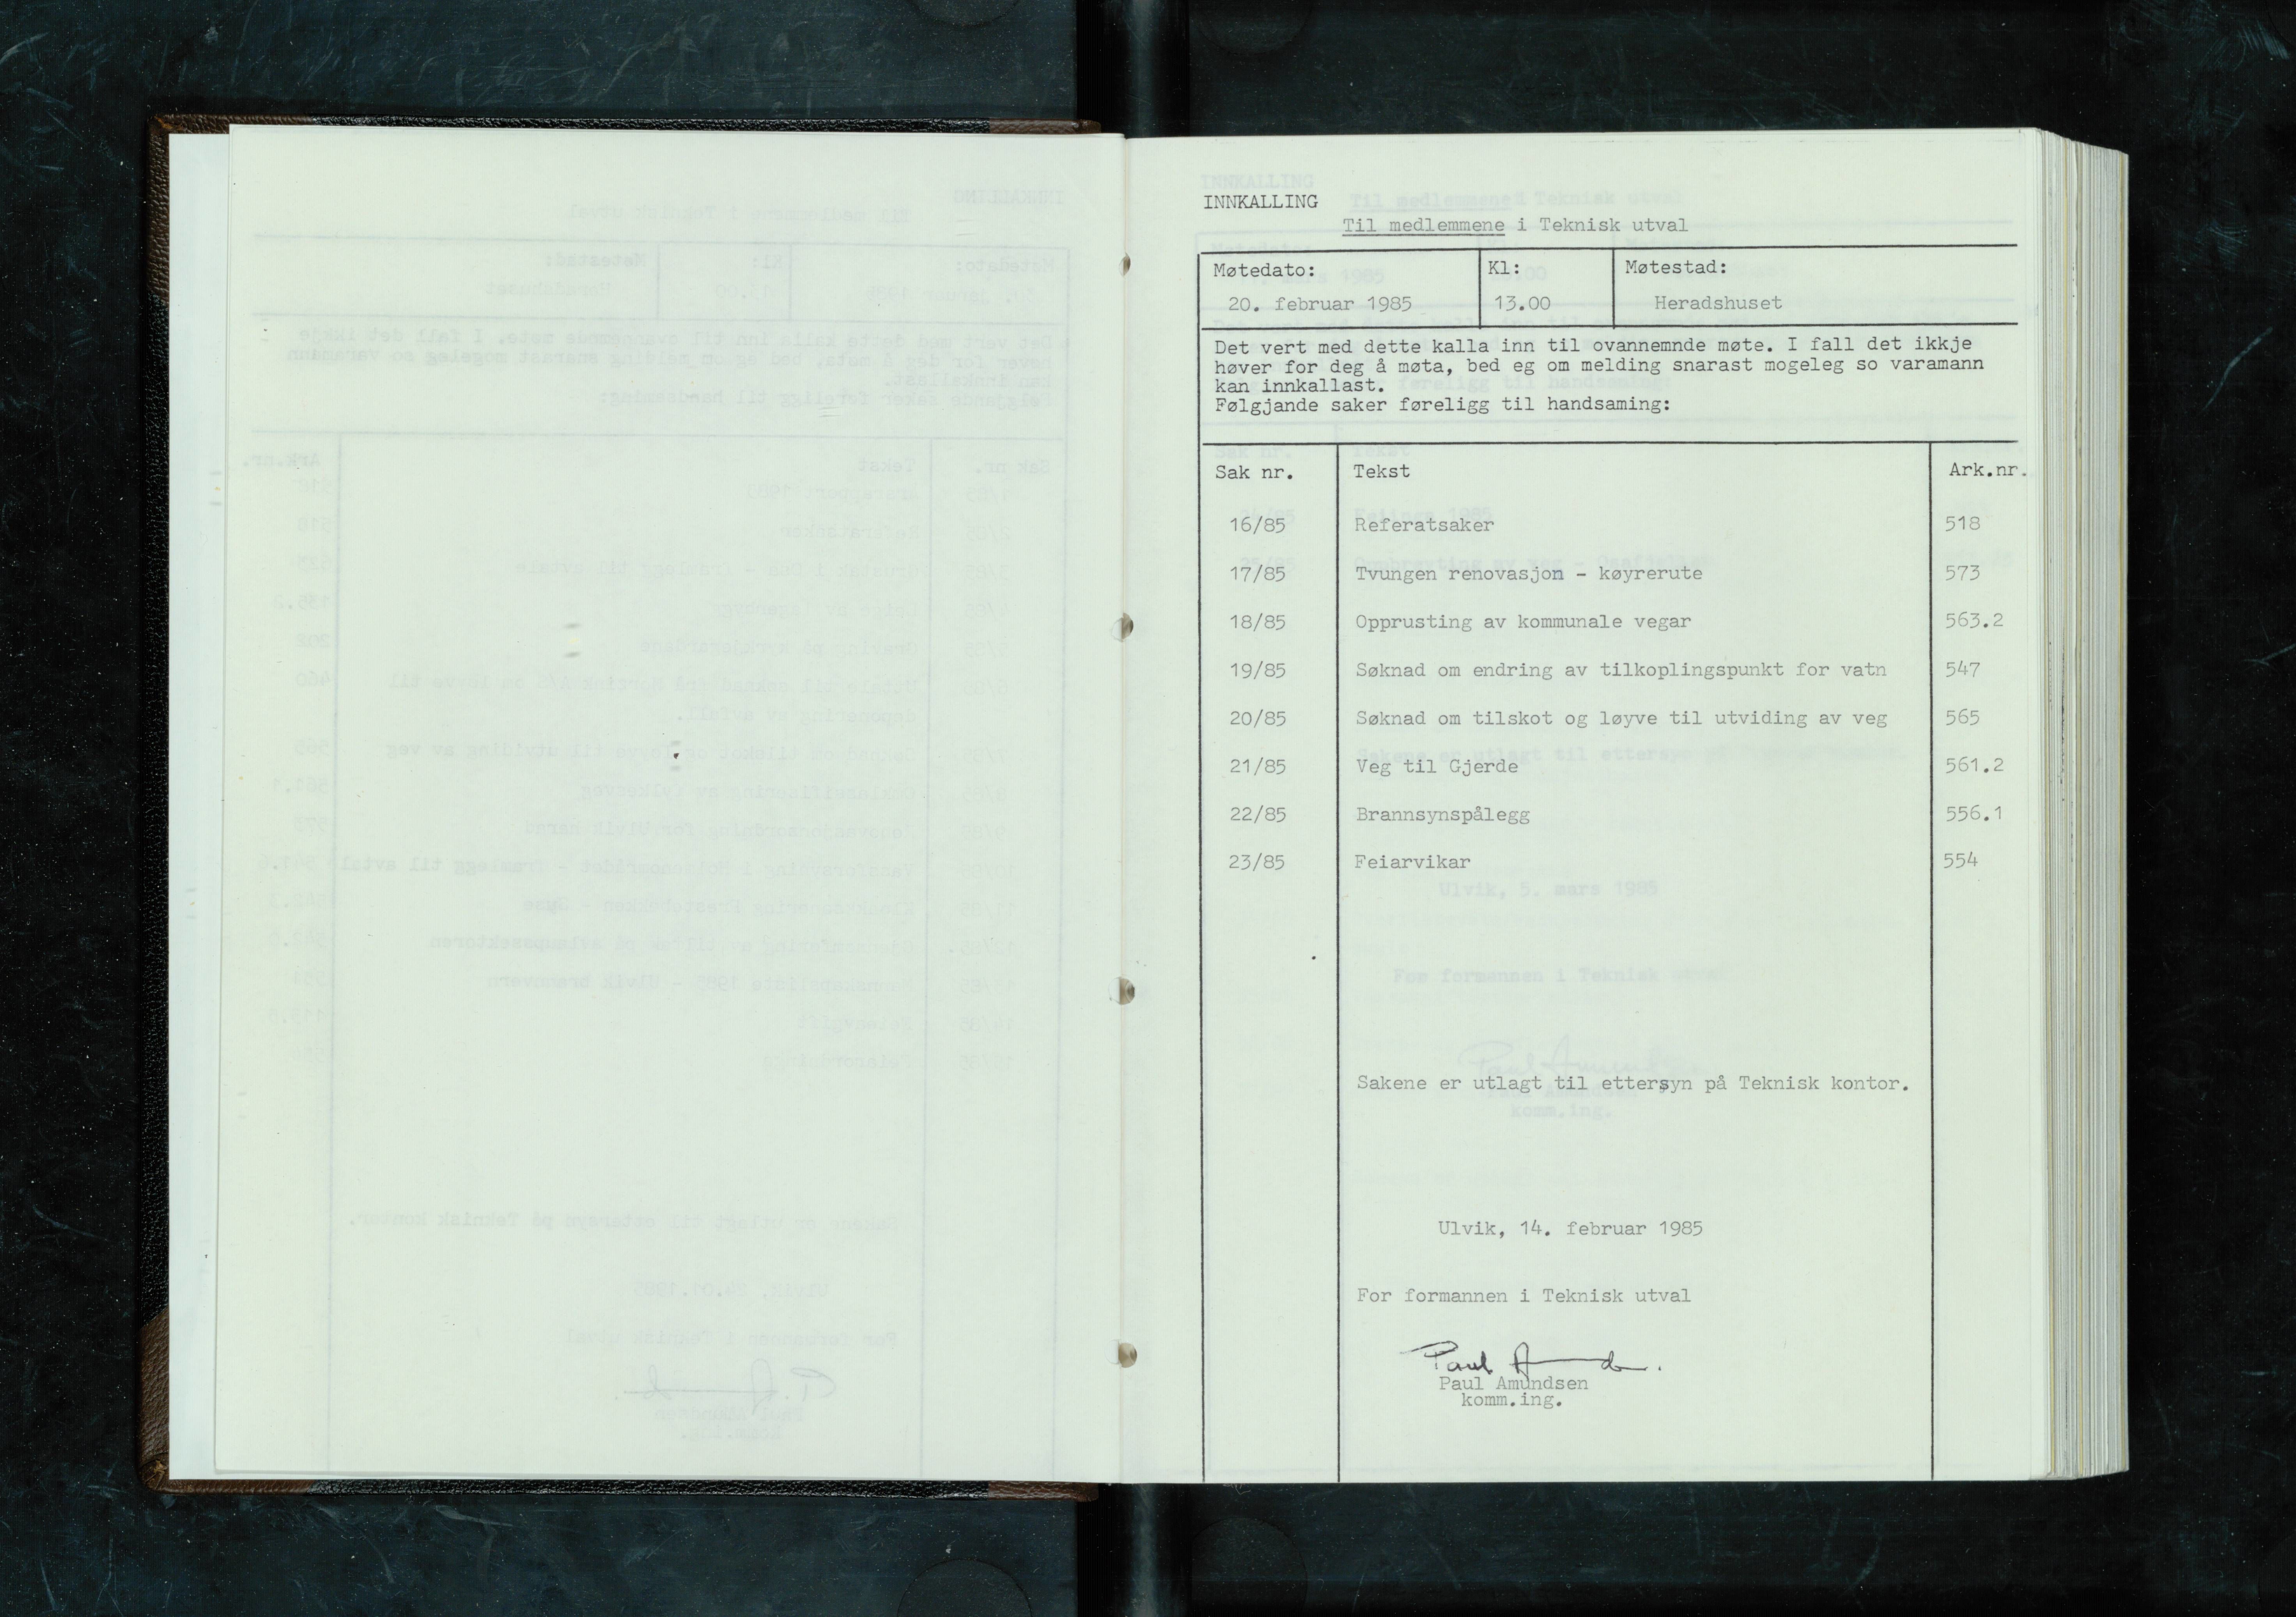 INNKALLING
Til medlemmene i Teknisk utval
Møtedato: Kl: Møtestad:
20. februar 1985 13.00 Heradshuset
Det vert med dette kalla inn til ovannemnde møte. I fall det ikkje
høver for deg å møta, bed eg om melding snarast mogeleg so varamann
kan innkallast.
Følgjande saker føreligg til handsaming:
Sak nr. Tekst Ark.nr.
16/85 Referatsaker 518
17/85 Tvungen renovasjon - køyrerute 573
18/85 Opprusting av kommunale vegar 563.2
19/85 Søknad om endring av tilkoplingspunkt for vatn 547
20/85 Søknad om tilskot og løyve til utviding av veg 565
21/85 Veg til Gjerde 561.2
22/85 Brannsynspålegg 556.1
23/85 Feiarvikar 554
Sakene er utlagt til ettersyn på Teknisk kontor.
Ulvik, 14. februar 1985
For formannen i Teknisk utval
Paul Amundsen
komm.ing.